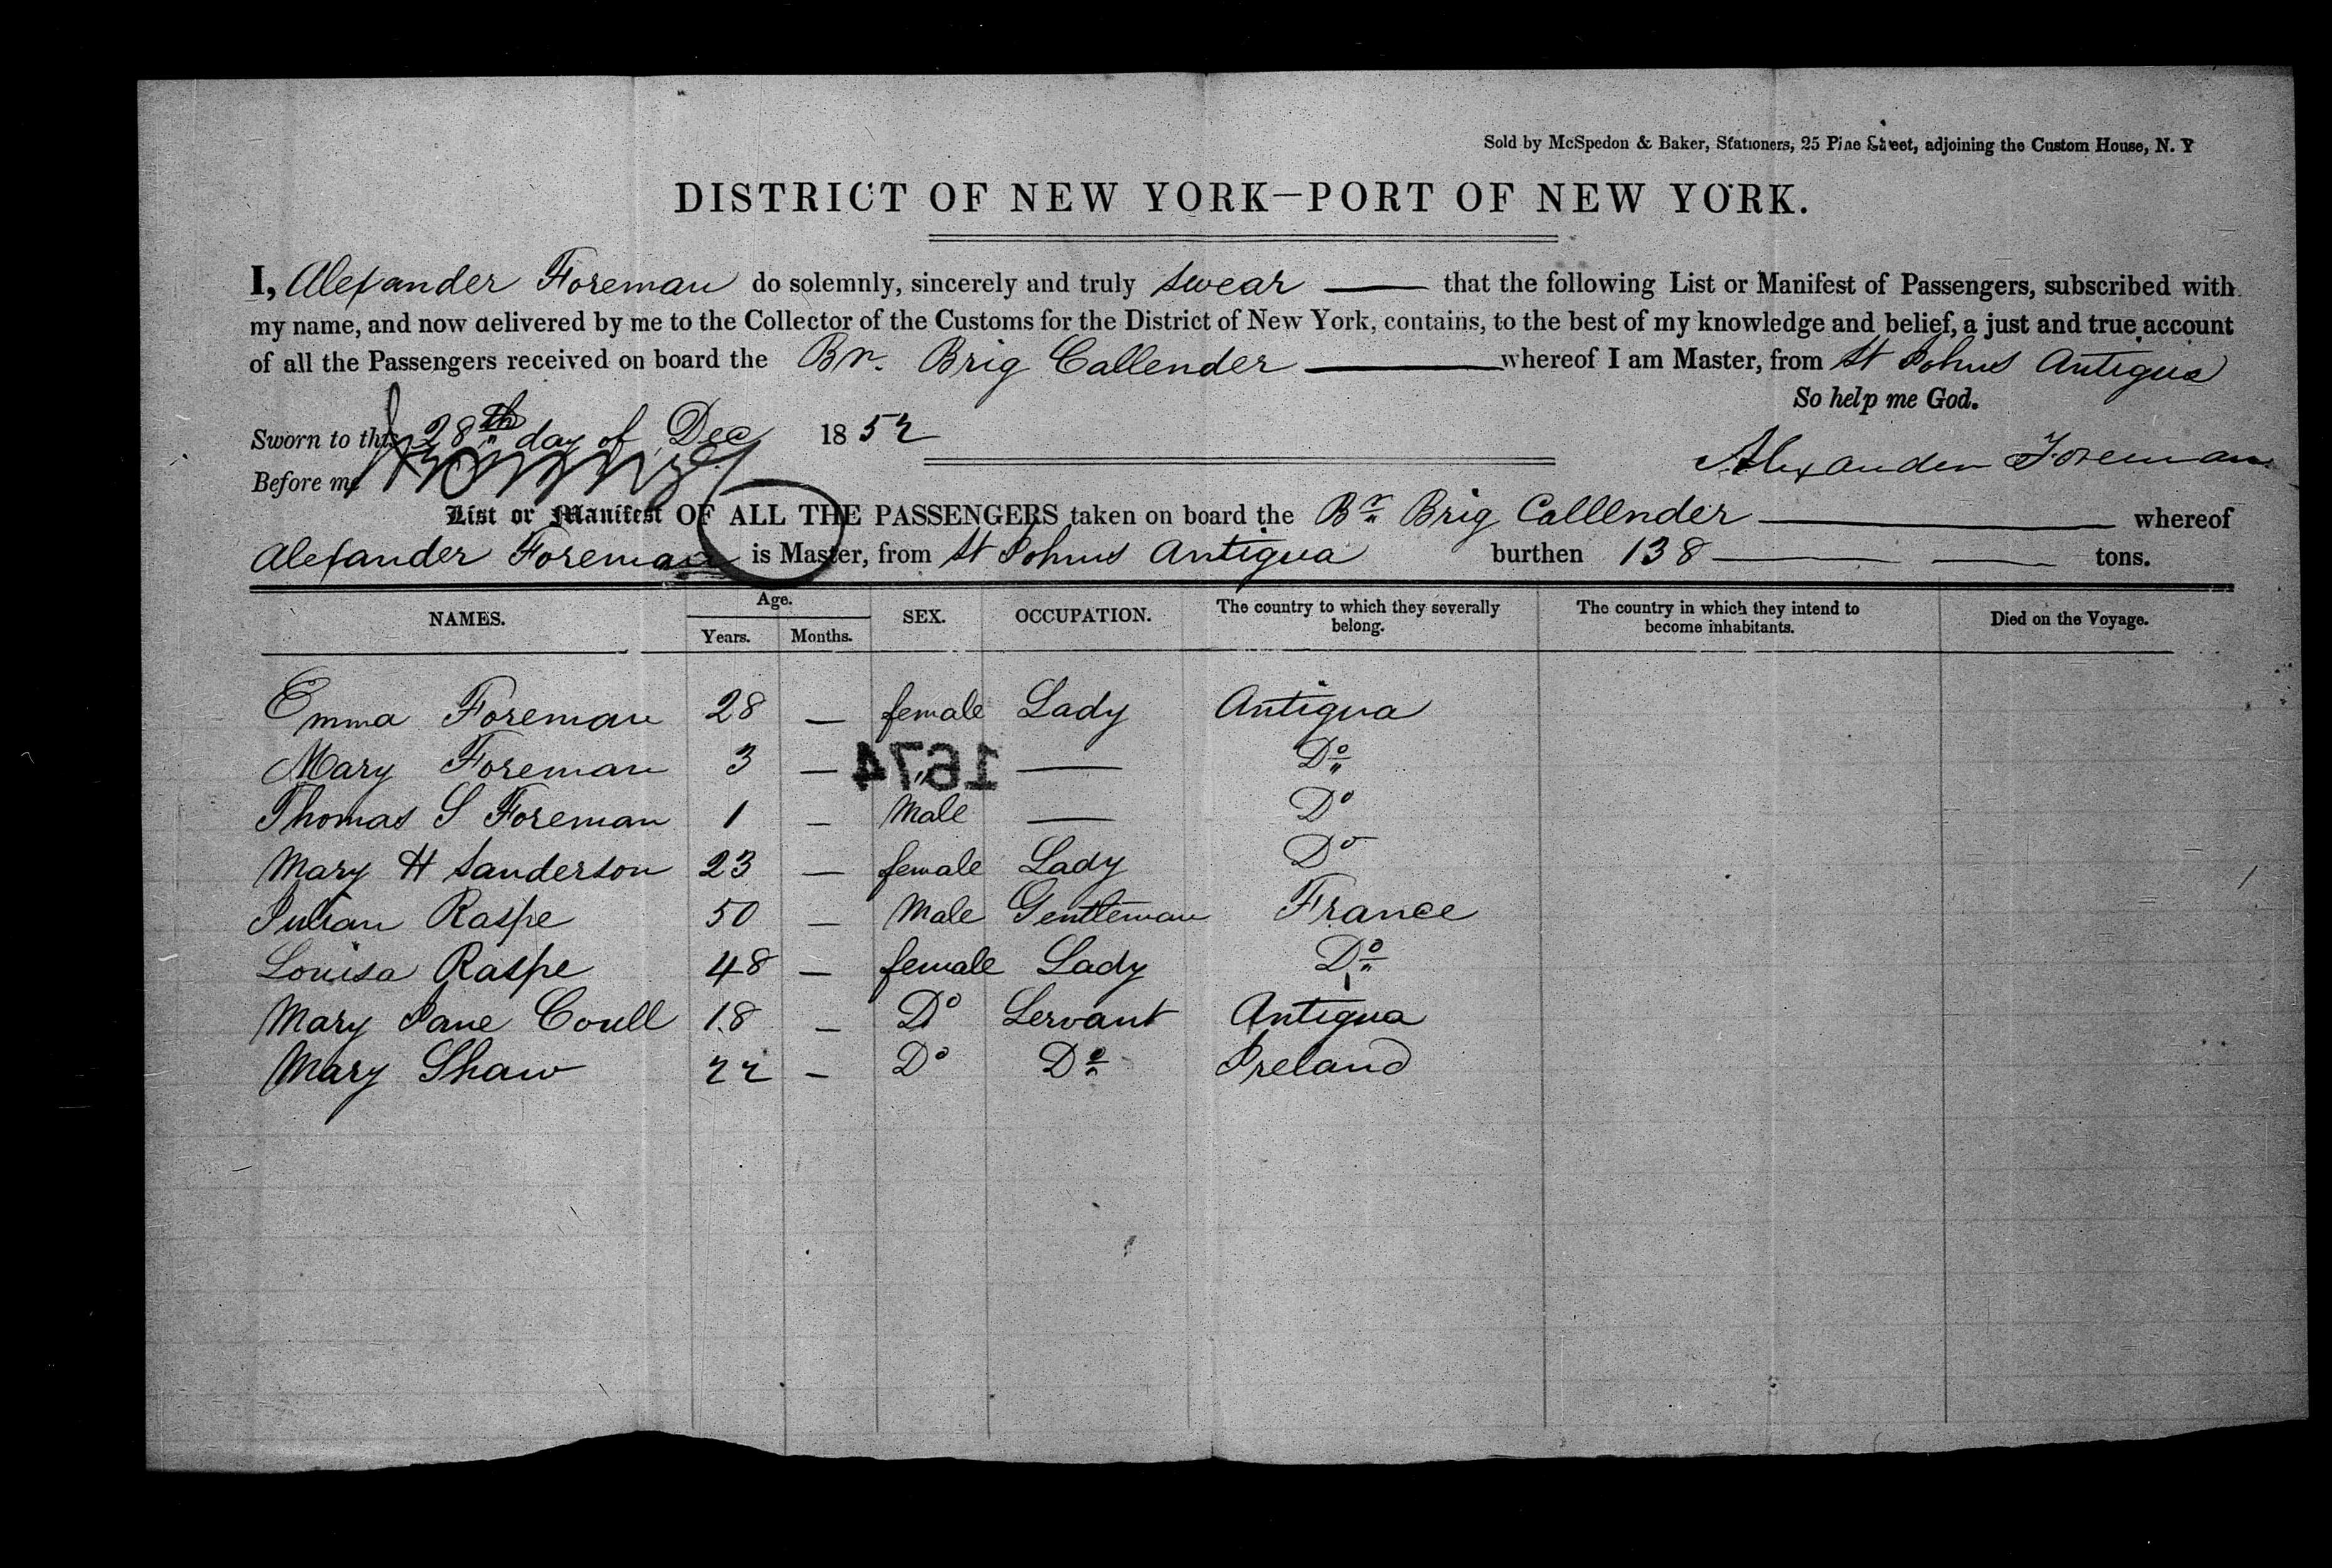 Sold by McSpedon & Baker, Stationers, 25 Pine Street, adjoining the Custom House, N. Y
DISTRICT OF NEW YORK—PORT OF NEW YORK.
I, Alexander Foreman do solemnly, sincerely and truly swear —— that the following List or Manifest of Passengers, subscribed with
my name, and now delivered by me to the Collector of the Customs for the District of New York, contains, to the best of my knowledge and belief, a just and true account
of all the Passengers received on board the Br. Brig Callender —— whereof I am Master, from St Johns Antigua
So help me God.
Sworn to this 28th day of Dec 1852
Alexander Foreman
Before me
List or Manifest OF ALL THE PASSENGERS taken on board the Br. Brig Callender —— whereof
Alexander Foreman is Master, from St Johns Antigua burthen 138 —— —— tons.
NAMES. Age. Years. Months. SEX. OCCUPATION. The country to which they severally belong. The country in which they intend to become inhabitants. Died on the Voyage.
Emma Foreman 28 — female Lady Antigua
Mary Foreman 3 — " — Do
1674
Thomas S Foreman 1 — Male — Do
Mary H Sanderson 23 — female Lady Do
Julian Raspe 50 — Male Gentleman France
Louisa Raspe 48 — female Lady Do
Mary Jane Coull 18 — Do Servant Antigua
Mary Shaw 22 — Do Do Ireland